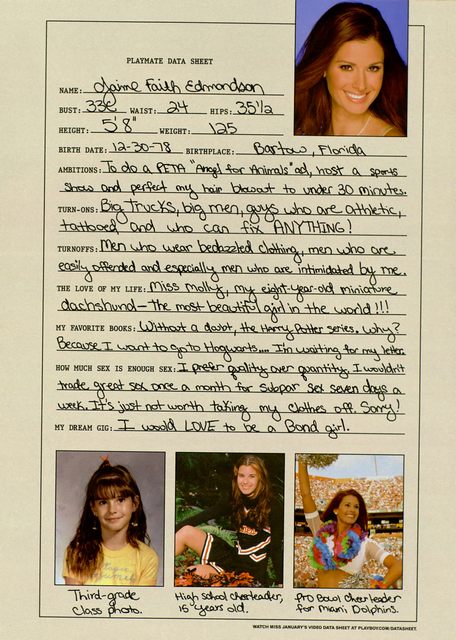 PLAYMATE DATA SHEET
NAME: Jaime Faith Edmondson
BUST: 33C WAIST: 24 HIPS: 35 1/2
HEIGHT: 5'8" WEIGHT: 125
BIRTH DATE: 12-30-78 BIRTHPLACE: Bartow, Florida
AMBITIONS: To do a PETA "Angel for Animals" ad, host a sports
show and perfect my hair blowout to under 30 minutes.
TURN-ONS: Big trucks, big men, guys who are athletic,
tattooed and who can fix ANYTHING!
TURNOFFS: Men who wear bedazzled clothing, men who are
easily offended and especially men who are intimidated by me.
THE LOVE OF MY LIFE: Miss Molly, my eight-year-old miniature
dachshund—The most beautiful girl in the world!!!
MY FAVORITE BOOKS: Without a doubt, the Harry Potter series. Why?
Because I want to go to Hogwarts.... I'm waiting for my letter.
HOW MUCH SEX IS ENOUGH SEX: I prefer quality over quantity. I wouldn't
trade great sex once a month for subpar sex seven days a
week. It's just not worth taking my clothes off. Sorry!
MY DREAM GIG: I would LOVE to be a Bond girl.
Third-grade
class photo.
High school cheerleader,
15 years old.
Pro Bowl cheerleader
for Miami Dolphins.
WATCH MISS JANUARY'S VIDEO DATA SHEET AT PLAYBOY.COM/DATASHEET.